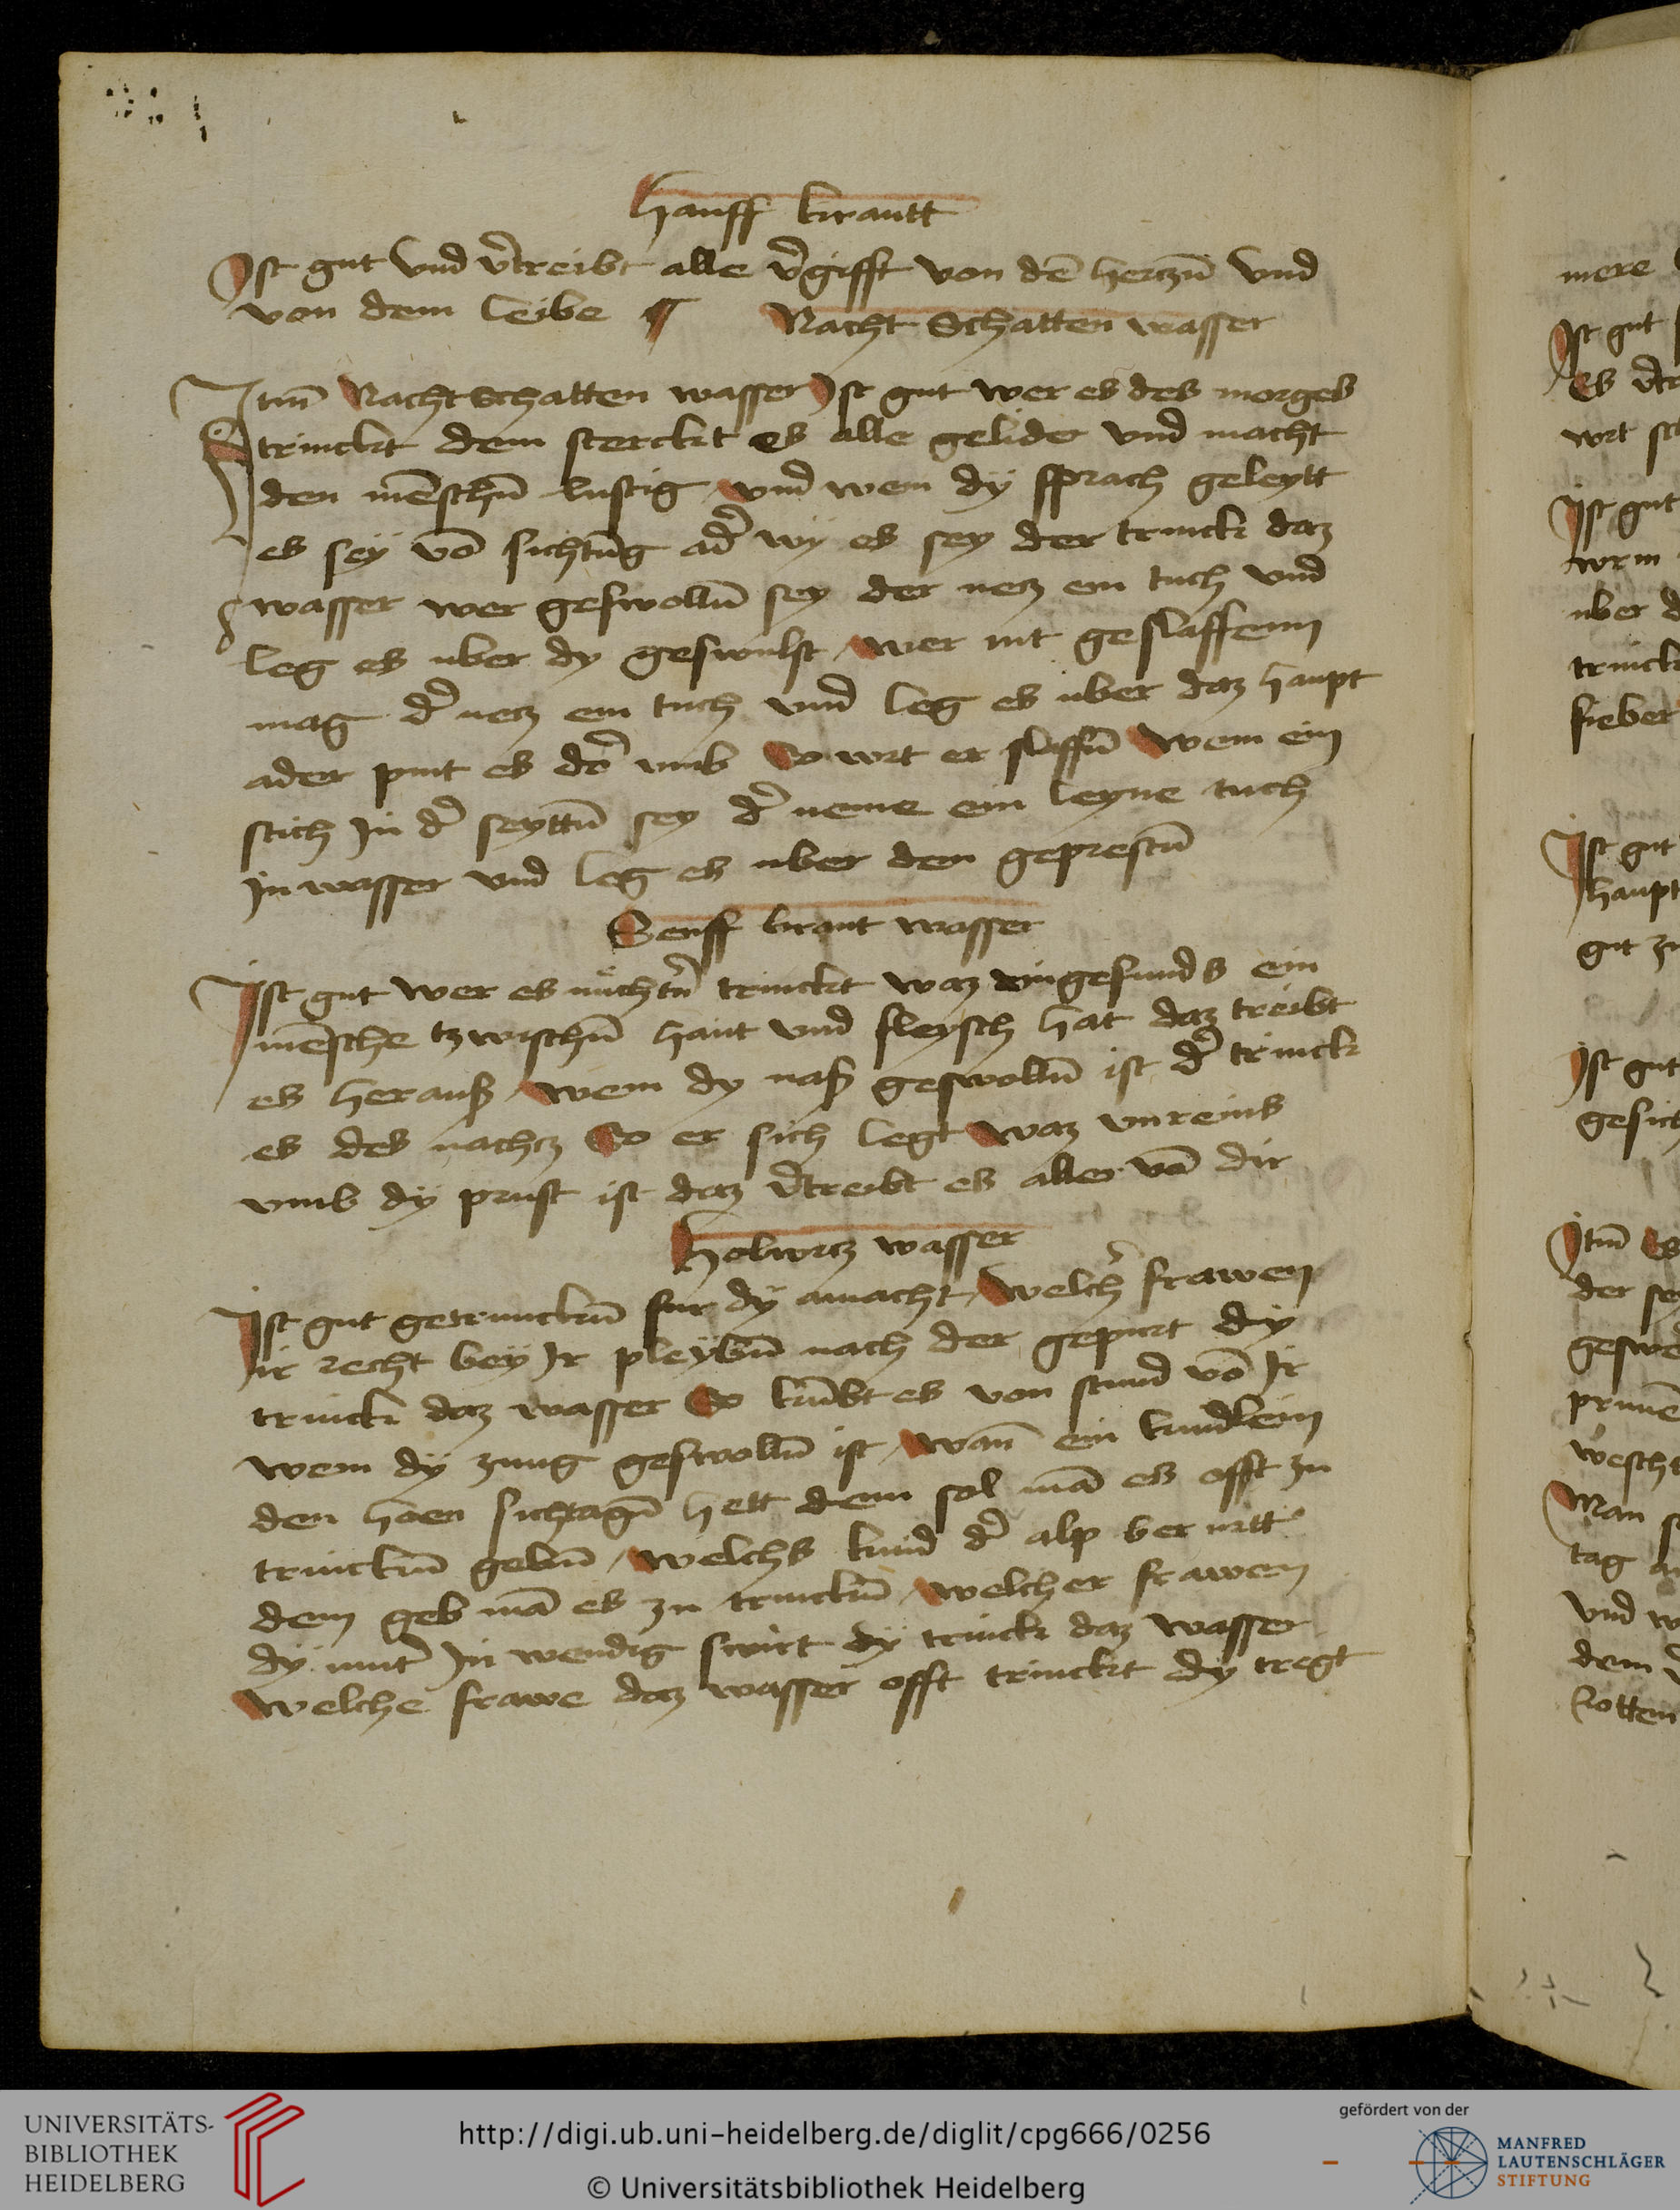 Hanff krautt
Ist gut vnd v̾treibt alle v̾gifft von dē herczn̄ vnd
von dem leibe ¶ Nacht Schatten wasser
Itm̄ Nacht Schatten wasser Ist gut wer es des morges
trinckt dem sterckt es alle gelider vnd macht
den mēschn̄ lustig vnd wem dÿ sprach geleytt
es sey vō sichtūg ad̾ wÿ es sey der trinck daz
wasser wer geswolln̄ sey der necz ein tuch vnd
leg es vber dy geswulst wer nit geslaffenn
mag d̾ necz ein tuch vnd leg es vber daz haupt
ader pint es dō vmb So wrt er slaffn̄ Wem ein
stich In d̾ seyttn̄ sey d̾ neme ein leyne tuch
In wasser vnd leg es vber den geprestn̄
Senff kraut wasser
Ist gut wer es nüchtn̄ trinckt waz vngesunds ein
mēsche tzwischn̄ haut vnd fleysch hat daz treibt
es herauß wem dy naß geswolln̄ ist d̾ trinck
es des nachcz So er sich legt waz vnreins
vmb dÿ prust ist daz v̾treibt es alles vō dir
Holwrcz wasser
Ist gut getrunckn̄ fur dÿ amacht welch̾ frawen
ir recht beÿ Ir pleybn̄ nach der gepurt dÿ
trinck daz wasser So kūbt es von stund vō Ir
wem dÿ zung geswolln̄ ist wan̄ ein kindlein
den hoen sichtagn̄ hett dem sol mā es offt zu
trinckn̄ gebn̄ welchs kind d̾ alp ber ritt
dem geb mā es zu trinckn̄ welcher frawen
dÿ mut̾ In wendig swirt dÿ trinck daz wasser
welche frawe daz wasser offt trinckt dÿ tregt
mere
Ist gut
Es
wrt
Ist gut
wrm
vber
trinck
fieber
Ist gut
haupt
gut zu
Ist gut
Itm̄ Es
der
Man
tag
vnd
dem
UNIVERSITÄTS-
BIBLIOTHEK
HEIDELBERG
http://digi.ub.uni-heidelberg.de/diglit/cpg666/0256
© Universitätsbibliothek Heidelberg
gefördert von der
MANFRED
LAUTENSCHLÄGER
STIFTUNG